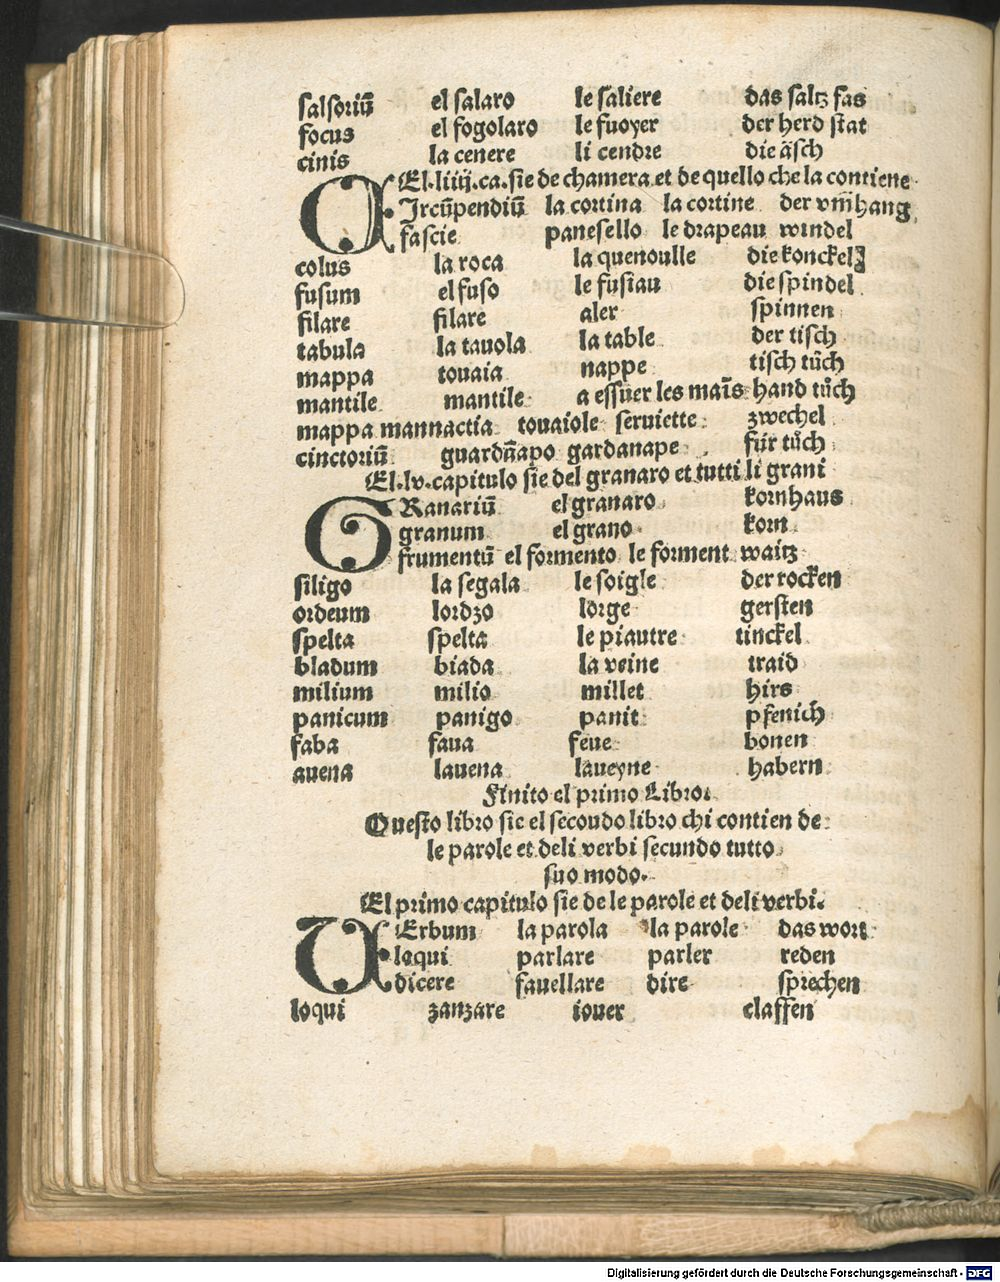 salsoriū el salaro le saliere das saltz fas
focus el fogolaro le fuoyer der herd stat
cinis la cenere li cendre die äsch
El.liiij.ca.sie de chamera et de quello che la contiene
CIrcūpendiū la cortina la cortine der vm̄hang
fascie panesello le drapeau windel
colus la roca la quenoulle die konckel
fusum el fuso le fusiau die spindel
filare filare aler spinnen
tabula la tauola la table der tisch
mappa touaia nappe tisch tůch
mantile mantile a essuer les mais̄ hand tůch
mappa mannactia touaiole seruiette zwechel
cinctoriū guardn̄apo gardanape für tůch
El.lv.capitulo sie del granaro et tutti li grani
GRanariū el granaro kornhaus
granum el grano korn
frumentū el formento le forment waitz
siligo la segala le soigle der rocken
ordeum lordzo lorge gersten
spelta spelta le piautre tinckel
bladum biada la veine traid
milium milio millet hirs
panicum panigo panit pfenich
faba faua feue bonen
auena lauena laueyne habern
Finito el primo Libro.
Questo libro sie el secoudo libro chi contien de
le parole et deli verbi secundo tutto
suo modo.
El primo capitulo sie de le parole et deli verbi.
VErbum la parola la parole das wort
loqui parlare parler reden
dicere fauellare dire sprechen
loqui zanzare iouer claffen
Digitalisierung gefördert durch die Deutsche Forschungsgemeinschaft - DFG